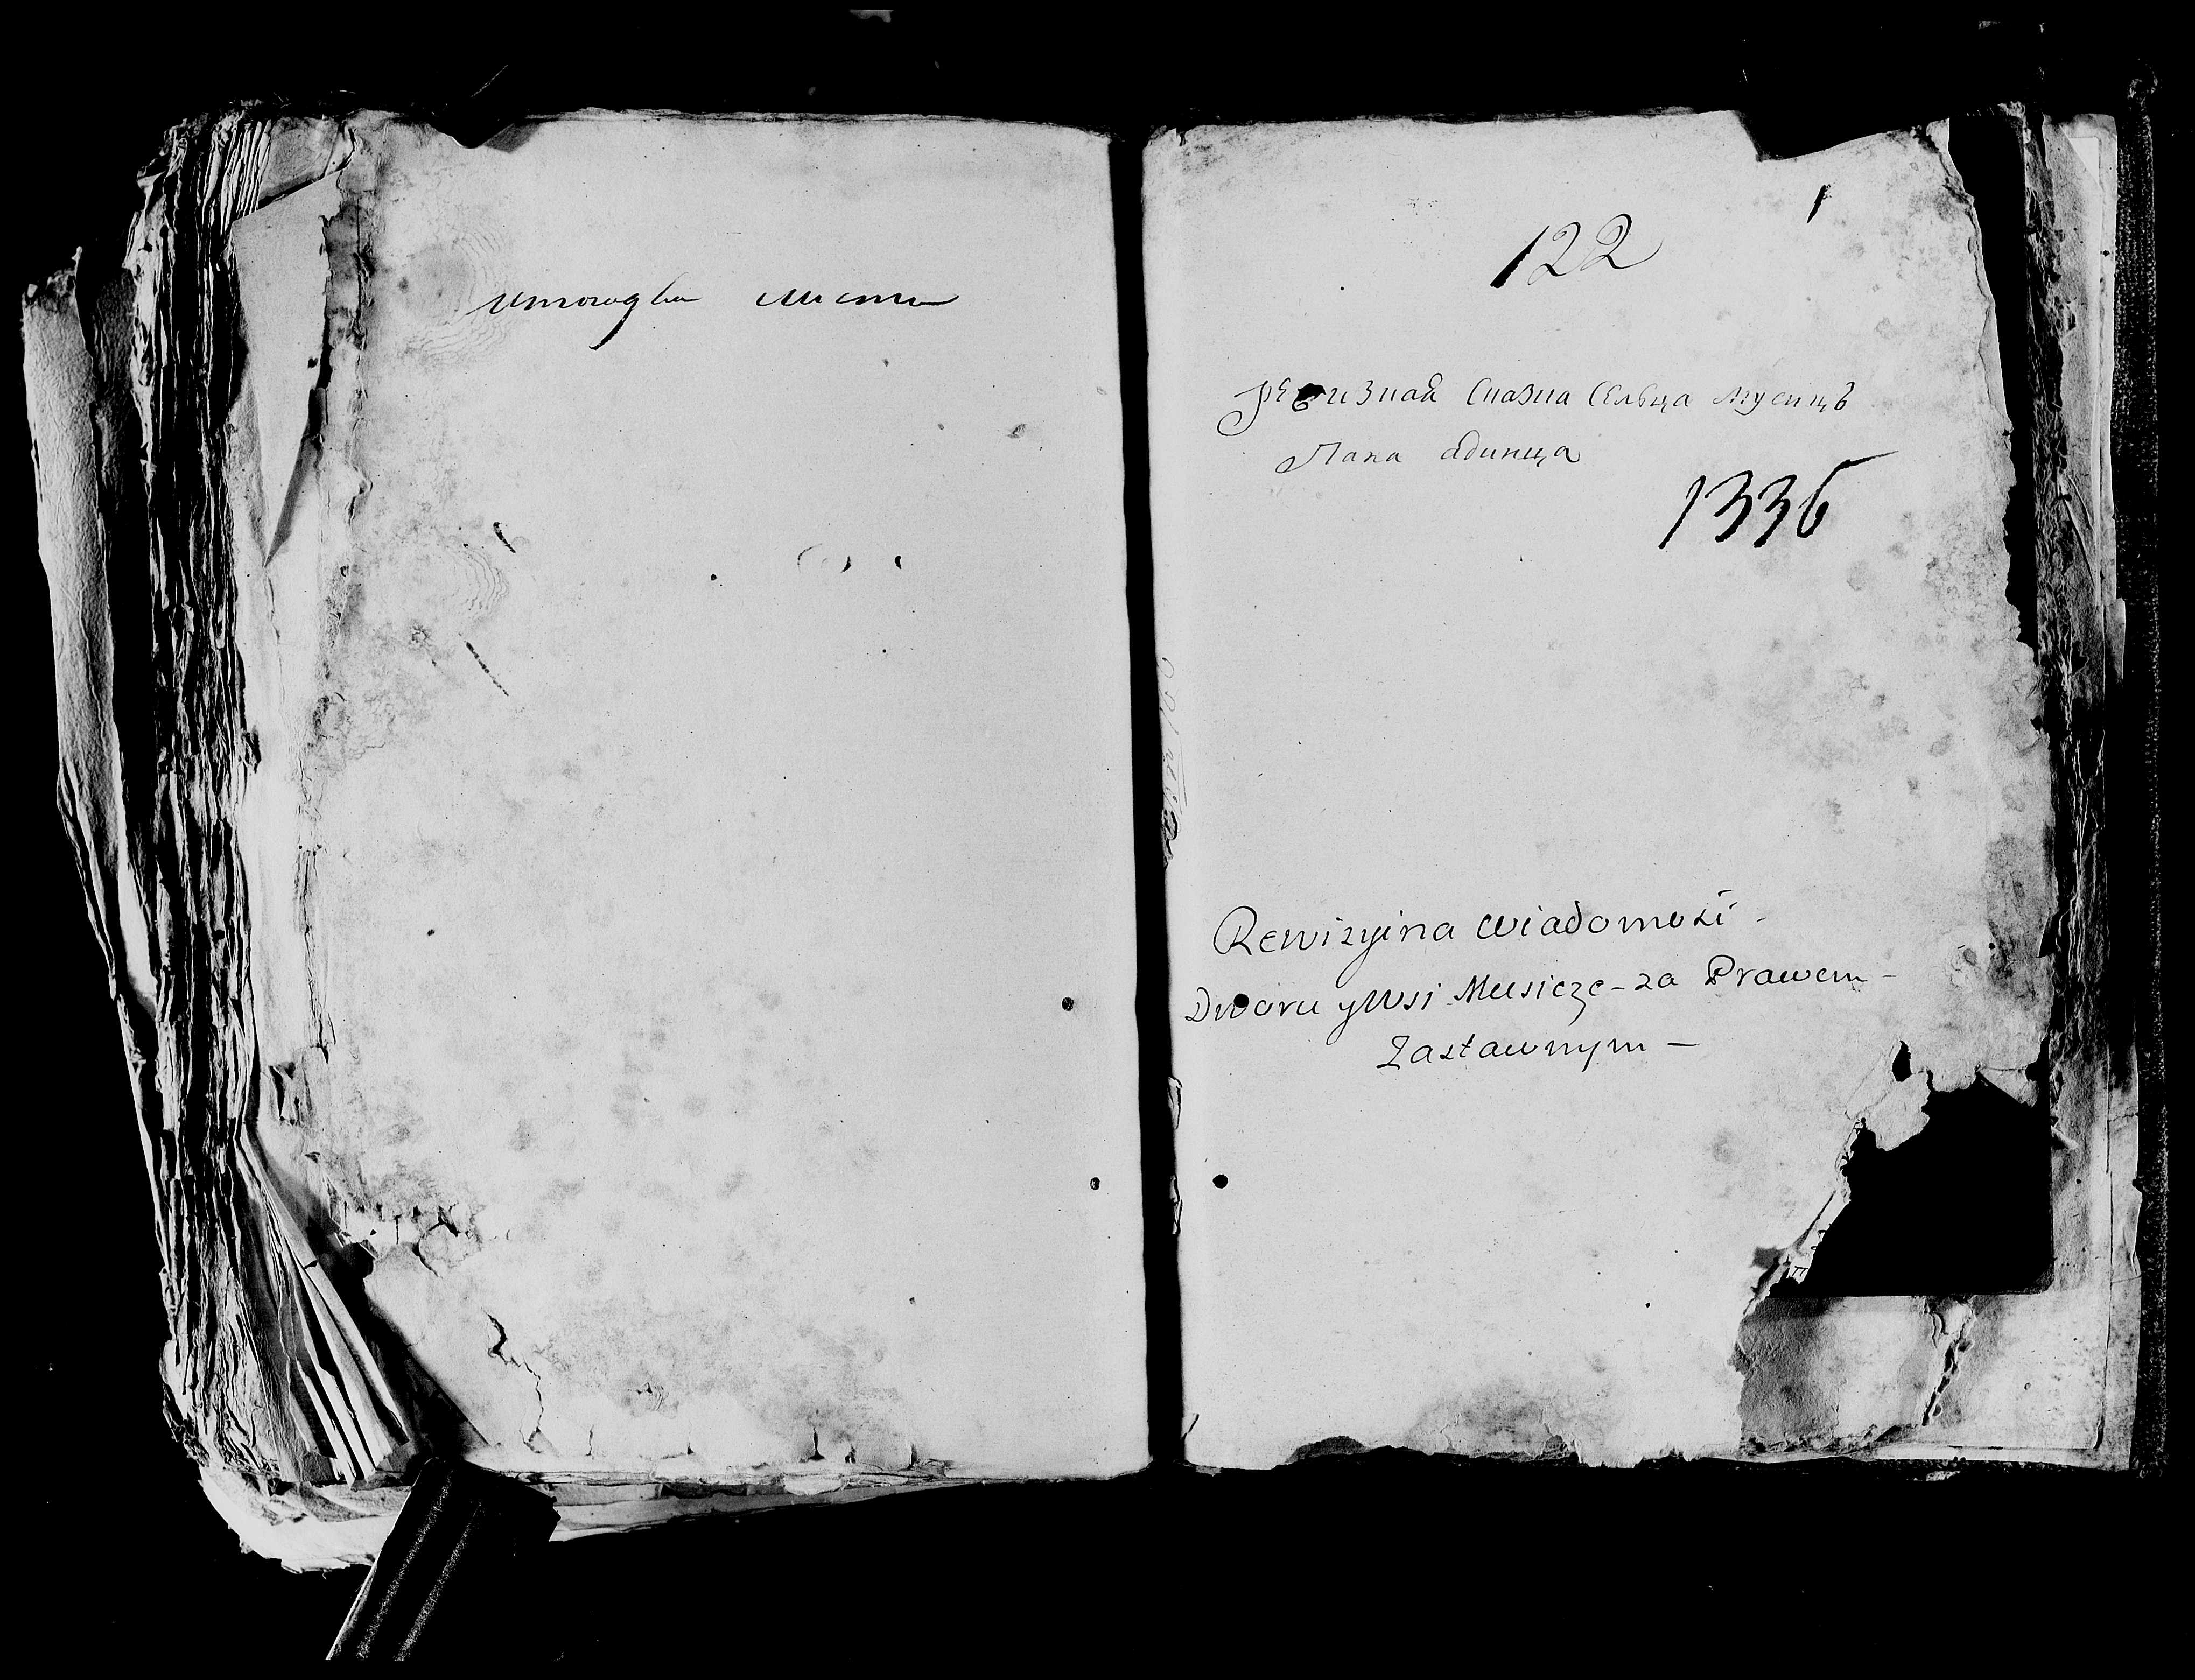 итого два листа
122
Ревизкая Сказка Селца Мусичъ
Пана Одинца
1336
Rewizyina wiadomość -
Dworu y Wsi Musicze - za Prawem -
Zastawnym -